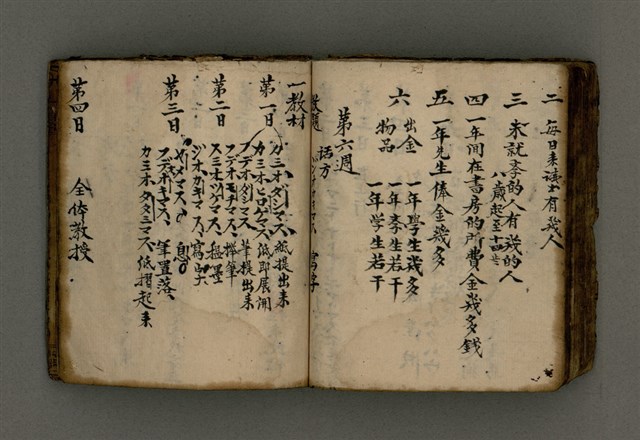 二 每日來讀書有幾人
三 來就李的人有幾的人
八歲起至十四
四 一年間在書房的所費金幾多錢
五 一年先生俸金幾多
六 出金 一年學生幾多
物品 一年學生若干
一年學生若干
第六週
話方
一教材
第一日 カミオダシマス、紙提出来
カミオヒロゲマス、紙即展開
フデオダシマス 筆提出来
フデオモチマス、擇筆
第二日 スミオツケマス、搵墨
ジオカキマス、寫字
ヤメマス、息
第三日 フデオオキマス、筆置落、
カミオタタミマス、紙摺起来
第四日 全体教授